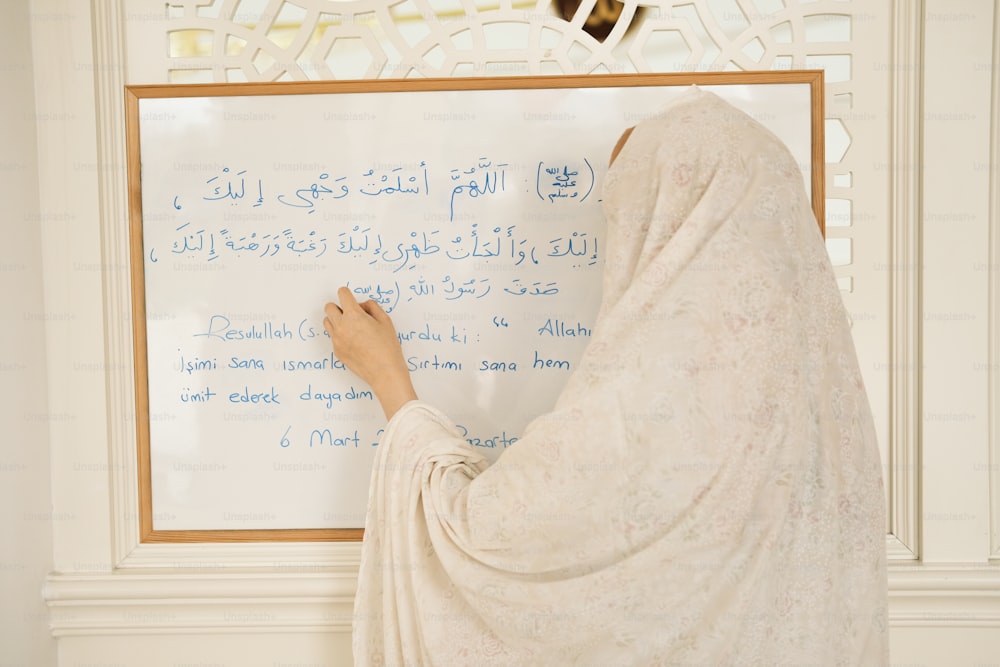 (ﷺ): اَللّٰهُمَّ أَسْلَمْتُ وَجْهِي إِلَيْكَ ،
إِلَيْكَ ، وَأَلْجَأْتُ ظَهْرِي إِلَيْكَ رَغْبَةً وَرَهْبَةً إِلَيْكَ ،
صَدَقَ رَسُولُ اللهِ (ﷺ)
Resulullah (s. yurdu ki : “ Allahı
İşimi sana ısmarla Sırtımı sana hem
ümit ederek dayadım
6 Mart Pazarte